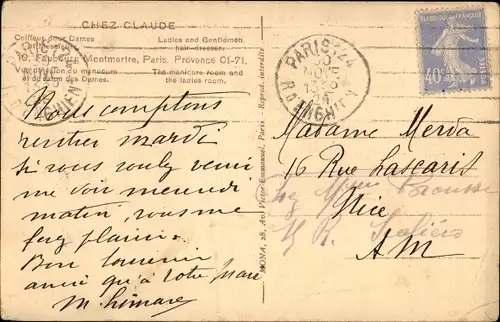 CHEZ CLAUDE
Coiffeur pour Dames
Ladies and Gentlemen
hair-dresser
10, Faubourg Montmartre, Paris. Provence 01-71.
Vue du salon du manucure
et du salon des Dames.
The manicure room and
the ladies room.
PARIS
Nous comptons
rentrer mardi
si vous voulez venir
me voir mercredi
matin, vous me
fez plaisir.
Bon souvenir
ainsi qu'à votre mari
MONA, 28, Av. Victor-Emmanuel, Paris. - Reprod. interdite
REPUBLIQUE FRANÇAISE
40c
Madame Merda
16 Rue Lascaris
Chez Mme
Nice
R.
A M